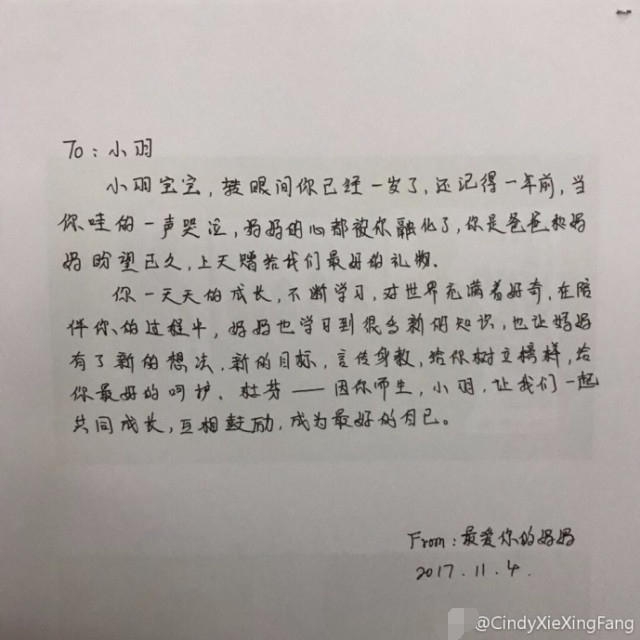 To：小羽
小羽宝宝，转眼间你已经一岁了，还记得一年前，当
你哇的一声哭泣，妈妈的心都被你融化了，你是爸爸和妈
妈盼望已久，上天赠给我们最好的礼物。
你一天天的成长，不断学习，对世界充满着好奇，在陪
伴你的过程中，妈妈也学习到很多新的知识，也让妈妈
有了新的想法，新的目标，言传身教，给你树立榜样，给
你最好的呵护。杜芬——因你而生，小羽，让我们一起
共同成长，互相鼓励，成为最好的自己。
From：最爱你的妈妈
2017.11.4.
@CindyXieXingFang